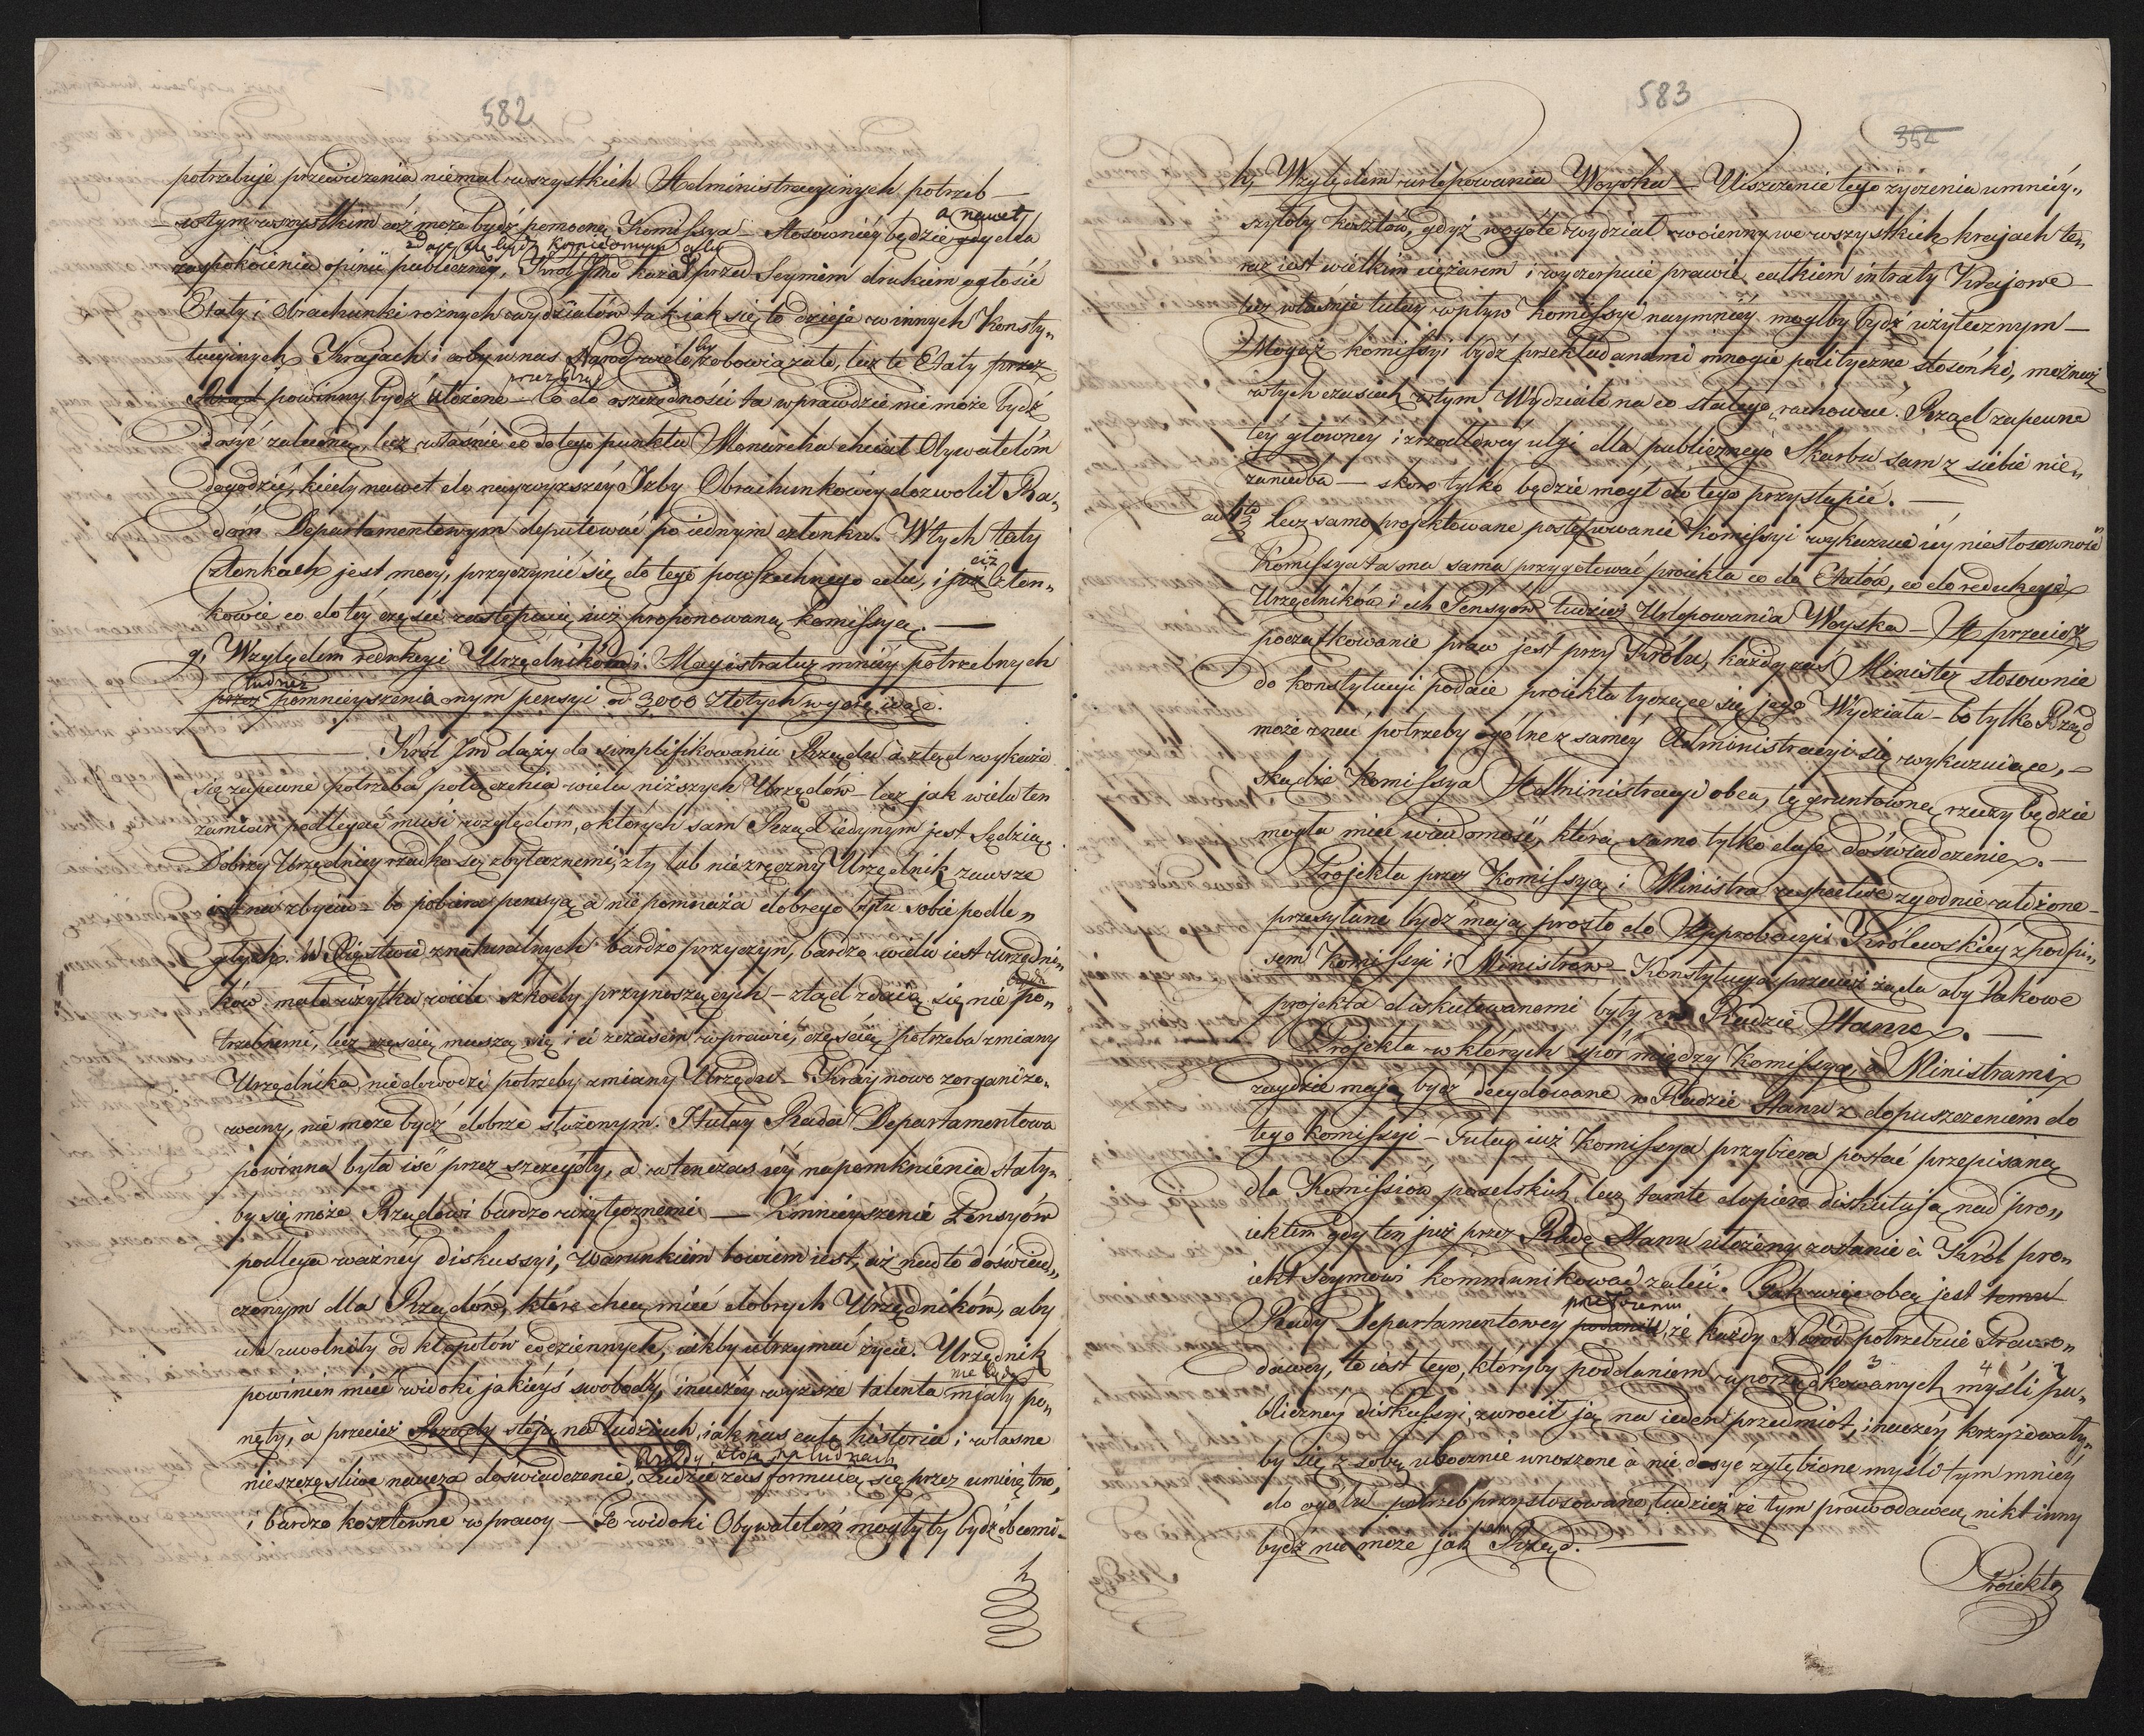 582
potrzebuje przewidzenia niemal wszystkich Administracyinych potrzeb —
— w tym wszystkim cóż może bydź pomocną Komissya — Stosowniéy będzie gdy dla
a nawet
zdaje się bydź koniecznym aby
zaspokoienia opinii publiczney, Król Jmć kazał przed Seymem drukiem ogłosić
Etaty i Obrachunki roznych wydziałów tak iak się to dzieje w innych Konsty„
tucyinych Krajach i coby u nas Naród wiele by zobowiązało, lecz te Etaty przez
przez Rząd
Rząd powinny bydź ułożone — Co do oszczędności ta wprawdzie nie może bydź
dosyć zaleconą, lecz właśnie co do tego punktu Monarcha chciał Obywatelóm
dogodzić, kiedy nawet do naywyzszéy Izby Obrachunkowéy dozwolił Ra„
dóm Departamentowym deputować po iednym członku. W tych tedy
Członkach jest mocą, przyczynić się do tego powszechnego celu, i już Człon„
ciż
kowie co do téy części zastępuią iuż proponowaną Komissyą. —
g, Względem redukcyi Urzędników i Magistratur mniéy potrzebnych
tudzież
przez pomnieyszenia onym pensyi od 3,000 Złotych wyżéy idące.
— Król Jmć dąży do simplifikowania Rządu à ztąd wykaże
się zapewne potrzeba połączenia wielu niższych Urzędów — lecz jak wiele ten
zamiar podlegać musi względóm, o których sam Rząd iedynym jest Sędzią.
Dobrzy Urzędnicy rzadko są zbytecznemi, zły lub niezręczny Urzędnik zawsze
iest na zbyciu — bo pobiera pensyą a nie pomnaża dobrego bytu sobie podle„
głych. W Xięstwie z naturalnych bardzo przyczyn, bardzo wielu iest urzędni„
ków mało użytku, wiele szkody przynoszących — ztąd zdaią się nie po„
bydź
trzebnemi, lecz częścią muszą się i ci z czasem wprawić, częścią potrzeba zmiany
Urzędnika, nie dowodzi potrzeby zmiany Urzędu — Kray nowo zorganizo„
wany, nie może bydź dobrze służonym. I tutay Rada Departamentowa
powinna była iść przez szczegóły, a wtenczas iéy napomknienia stały„
by się może Rządowi bardzo użytecznémi — Zmnieyszenie Pensyów
podlega ważnéy diskussyi, warunkiem bowiem iest, aż nadto doświad„
czonym dla Rządów, które chcą mieć dobrych Urzędników, aby
ich uwolniły od kłopotów codziennych, iakby utrzymać życie. Urzędnik
powinien mieć widoki jakieyś swobody, inaczéy wyższe talenta miały po„
nie będą
nęty, à przecież Rządy stoją na Ludziach, iak nas cała historia i własne
Rządy stoją na ludziach
nieszczęśliwe naucza doświadczenie, Ludzie zaś formuią się przez umieiętno„
i bardzo kosztowne wprawy — Te widoki Obywatelóm mogłyby bydź obcemi —
h
583
354
h, Względem urlopowania Woyska — Uiszczenie tego życzenia umnieỳ„
szyłoby kosztów, gdyż wogóle wydział woienny we wszystkich krajach te„
raz iest wielkim ciężarem i wyczerpuie prawie całkiem intraty Krajowe —
lecz właśnie tutay wpływ Komissyi naymniéy mogłby bydź użytecznym —
Mogąż Komissyi bydź przekładanemi mnogie polityczne stosónki, możnaż
w tych czasiech w tym Wydziale na co stałego rachować. Rząd zapewne
téy głownéy i zrzodłowéy ulgi dla publicznego Skarbu sam z siebie nie„
zaniedba — skoro tylko będzie mógł do tego przystąpić. —
ad 3tio Lecz samo projektowane postępowanie Komissyi wykazuie iéy niestosowność
Komissya ta ma sama przygotować proiekta co do Etatów, co do redukcyi
Urzędników i ich Pensyów tudzież Urlopowania Woyska — A przecież
początkowanie praw jest przy Królu, każdy zaś Minister stosownie
do konstytucyi podaie proiekta tyczące się jego Wydziału — bo tylko Rząd
może znać potrzeby ogólne z saméy Administracyi się wykazuiące, —
skądże Komissya Administracyi obca, tę gruntowną rzeczy będzie
mogła mieć wiadomość, którą samo tylko daje doświadczenie. —
Projekta przez Komissyą i Ministra respective zgodnie ułożone —
przesyłane bydź mają prosto do Approbacyi Królewskiéy z podpi„
sem Komissyi i Ministrów — Konstytucya przecież żąda aby takowe
projekta diskutowanemi były w Radzie Stanu. —
Projekta w których spór między Komissyą, à Ministrami
zaydzie mają bydź decydowane w Radzie Stanu z dopuszczeniem do
tego Komissyi — Tutay iuż Komissya przybiera postać przepisaną
dla Komissiów poselskich, lecz tamte dopiero diskutują nad pro„
iektem gdy ten już przez Radę Stanu ułożony zostanie à Król pro„
iekt Seymowi kommunikować zaleci. Tak więc obcą jest temu
przeyrzeniu
Rady Departamentowey podaniu, że każdy Naród potrzebuie Prawo„
dawcy, to iest tego, któryby poddaniem uporządkowanych myśli pu„
3 4 1
bliczney diskussyi, zwrócił ją na ieden przedmiot, inaczéy krzyżowały„
by się z sobą ubocznie wnoszone à nie dosyć zgłębione myśli tym mniéy
do ogółu potrzeb przystosowane, tudzież że tym prawodawcą nikt inny
bydź nie może jak Rząd. —
Proiekta